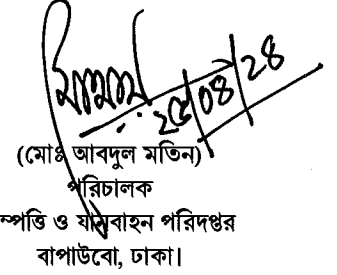 ২৫/০৪/২৪
(মোঃ আবদুল মতিন)
পরিচালক
ম্পত্তি ও যানবাহন পরিদপ্তর
বাপাউবো, ঢাকা।